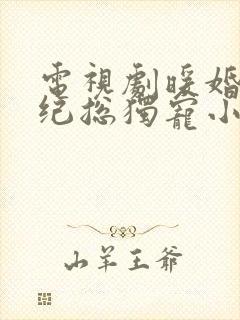 電視劇暖婚
纪总獨寵小
山羊王爺